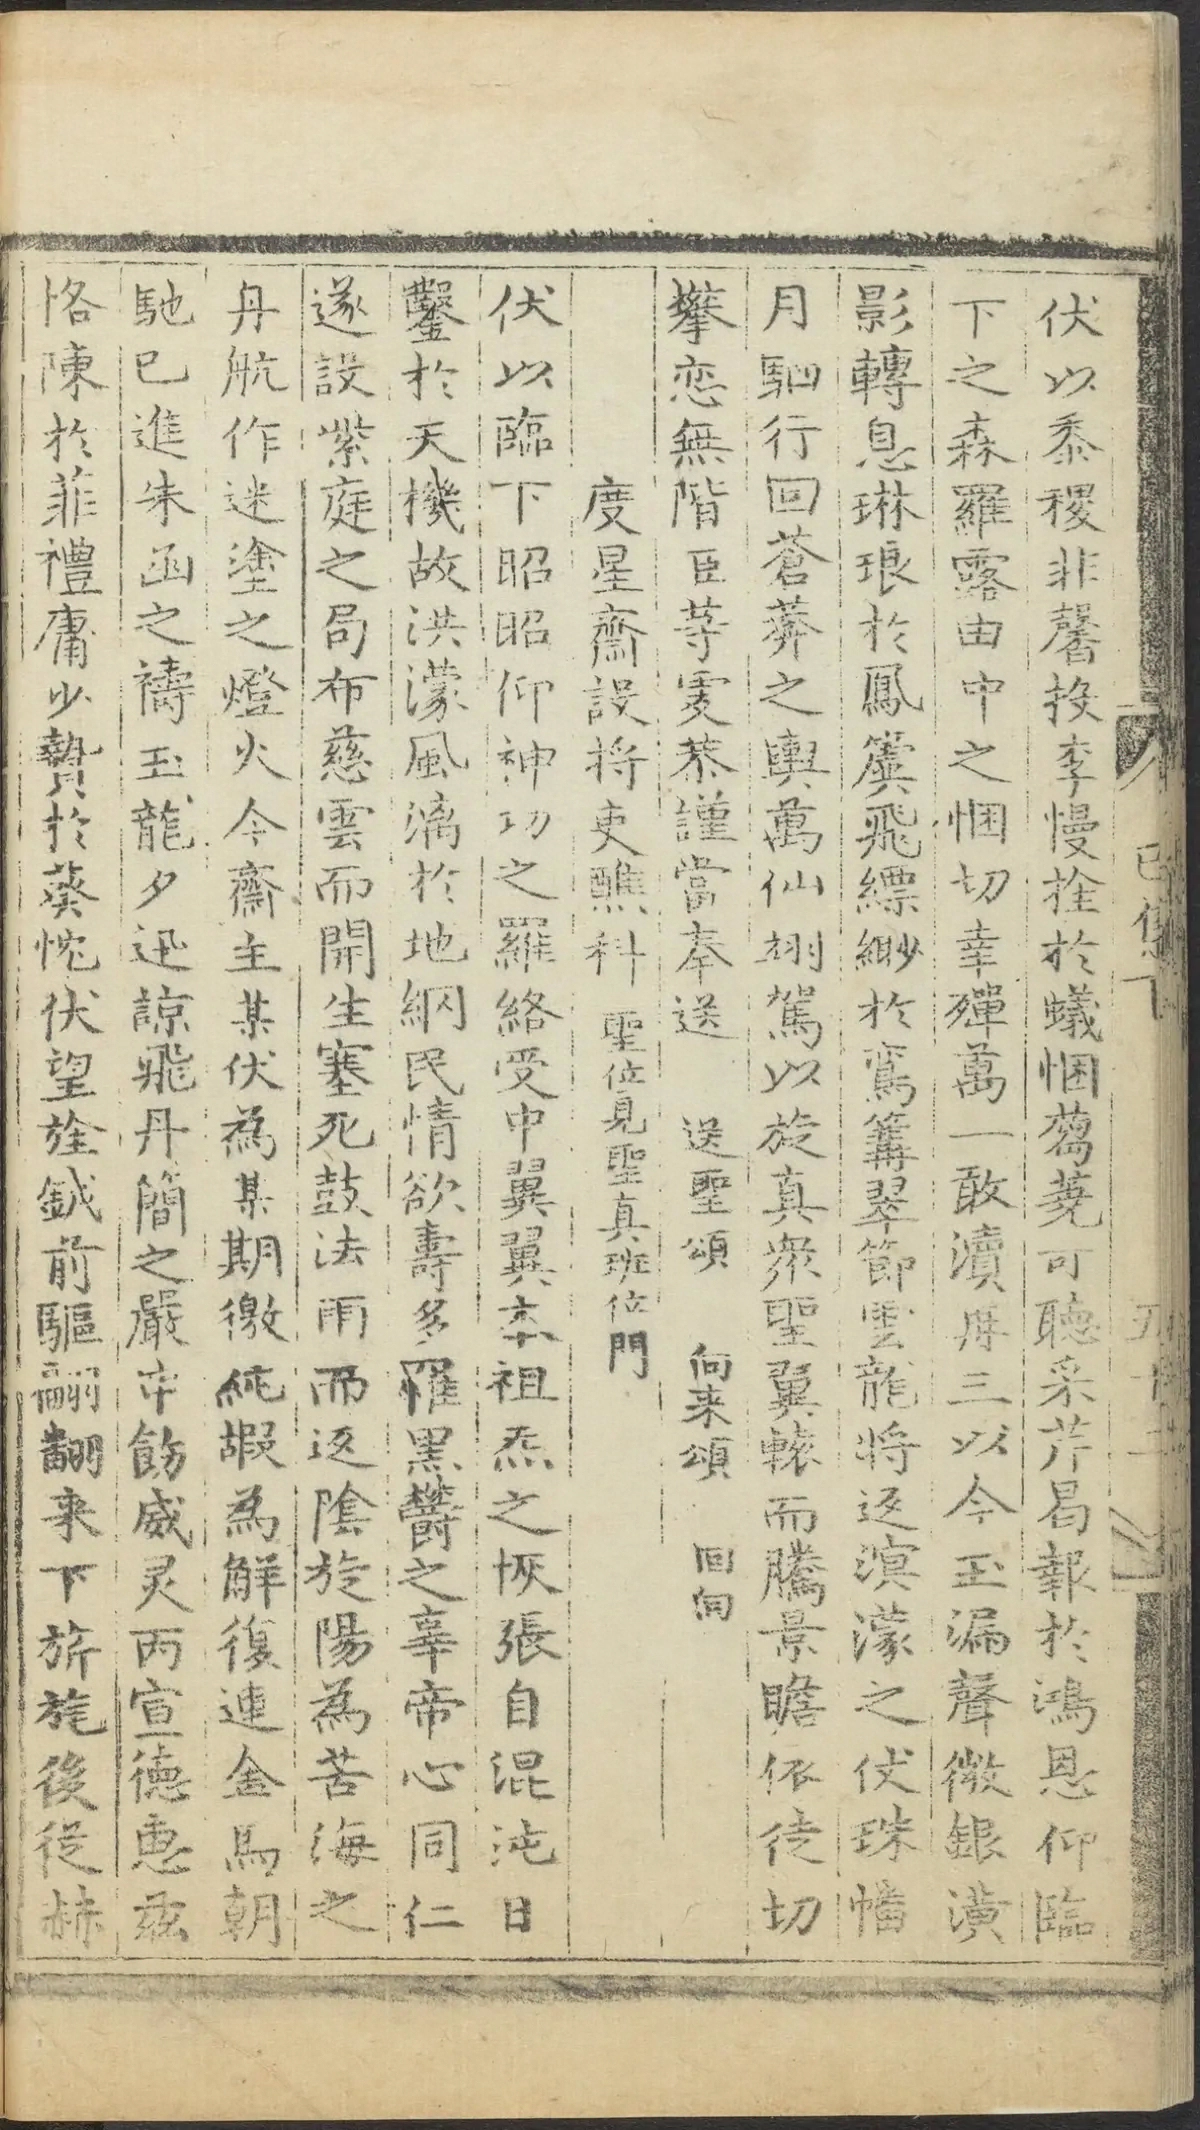 伏以黍稷非馨投李慢拴於蟻悃蒭蕘可聽采芹曷報於鴻恩仰臨
下之森羅露由中之悃切幸殫萬一敢瀆再三以今玉漏聲微銀潢
影轉息琳琅於鳳簴飛縹緲於鸞篝翠節雲龍將返溟濛之伏珠幡
月駟行回蒼莽之輿萬仙翊駕以旋真眾聖翼轅而騰景瞻依徒切
攀恋無階臣等虔恭謹當奉送 送聖頌 向来頌 回向
度星齋設將吏醮科 聖位見聖真班位門
伏以臨下昭昭仰神功之羅絡受中翼翼本祖炁之恢張自混沌日
鑿於天機故洪濛風漓於地綱民情欲壽多罹黑欝之辜帝心同仁
遂設紫庭之局布慈雲而開生塞死鼓法雨而返陰旋陽為苦海之
丹航作迷塗之燈火今齋主某伏為某期徼純嘏為觧復連金馬朝
馳已進朱函之禱玉龍夕迅諒飛丹簡之嚴中飭威灵丙宣徳惠茲
恪陳於菲禮庸少贄於葵忱伏望旌鉞前驅翩翻来下旂旄後從赫
已集下 五十二